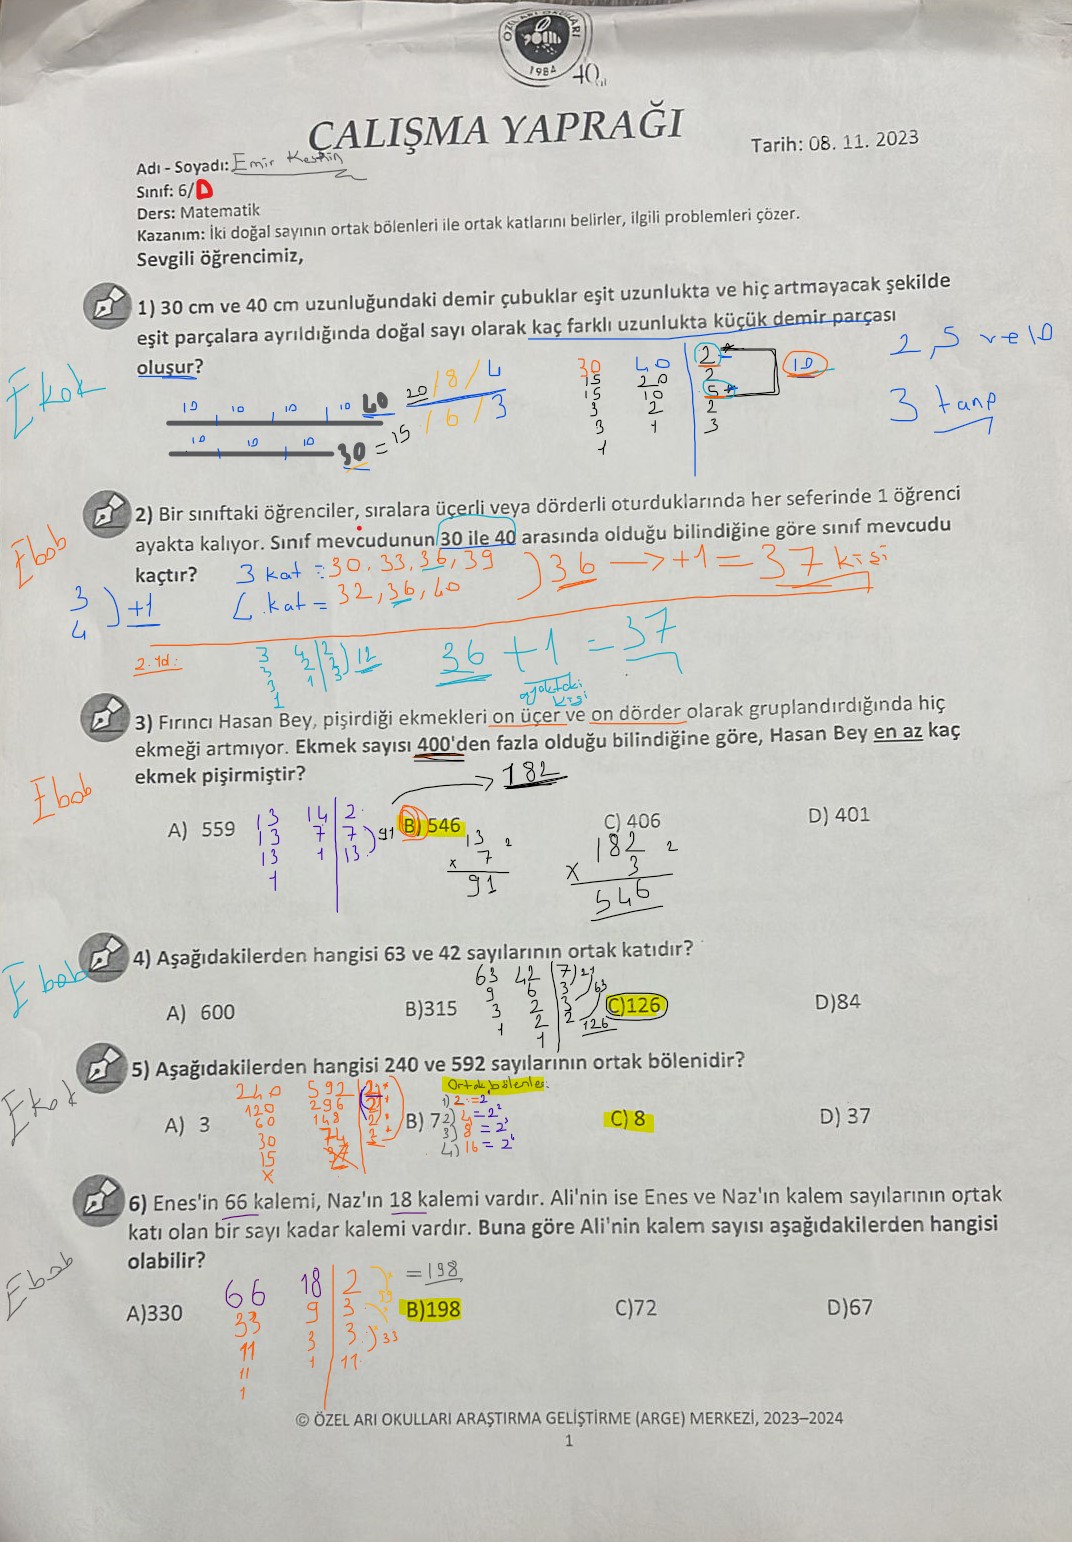 ÖZEL ARI OKULLARI
1984
40
ÇALIŞMA YAPRAĞI
Tarih: 08. 11. 2023
Adı - Soyadı: Emir Keskin
Sınıf: 6/D
Ders: Matematik
Kazanım: İki doğal sayının ortak bölenleri ile ortak katlarını belirler, ilgili problemleri çözer.
Sevgili öğrencimiz,
1) 30 cm ve 40 cm uzunluğundaki demir çubuklar eşit uzunlukta ve hiç artmayacak şekilde
eşit parçalara ayrıldığında doğal sayı olarak kaç farklı uzunlukta küçük demir parçası
oluşur?
Ekok
10 10 10 10 40 20/8/4
10 10 10 30 = 15 /6/3
30 40 2 10
15 20 2
15 10 5
3 2 2
3 1 3
1
2, 5 ve 10
3 tane
2) Bir sınıftaki öğrenciler, sıralara üçerli veya dörderli oturduklarında her seferinde 1 öğrenci
ayakta kalıyor. Sınıf mevcudunun 30 ile 40 arasında olduğu bilindiğine göre sınıf mevcudu
kaçtır?
Ebob
3 kat = 30. 33, 36, 39
4 kat = 32, 36, 40
) 36 → +1 = 37 kişi
3
4
) +1
2. yd:
3 4 2
3 2 2 ) 12
3 1 3
1
36 + 1 = 37
ayaktaki
kişi
3) Fırıncı Hasan Bey, pişirdiği ekmekleri on üçer ve on dörder olarak gruplandırdığında hiç
ekmeği artmıyor. Ekmek sayısı 400'den fazla olduğu bilindiğine göre, Hasan Bey en az kaç
ekmek pişirmiştir?
Ebob
182
A) 559 B) 546 C) 406 D) 401
13 14 2
13 7 7 ) 91
13 1 13
1
13 2
x 7
91
182 2
x 3
546
4) Aşağıdakilerden hangisi 63 ve 42 sayılarının ortak katıdır?
Ebob
63 42 7 ) 21
9 6 3 63
3 2 3
1 2 2 126
1
A) 600 B)315 C)126 D)84
5) Aşağıdakilerden hangisi 240 ve 592 sayılarının ortak bölenidir?
Ekok
240 592 2
120 296 2
60 148 2
30 74 2
15 37
Ortak bölenler:
1) 2 = 2
2) 4 = 2²
3) 8 = 2³
4) 16 = 2⁴
A) 3 B) 7 C) 8 D) 37
6) Enes'in 66 kalemi, Naz'ın 18 kalemi vardır. Ali'nin ise Enes ve Naz'ın kalem sayılarının ortak
katı olan bir sayı kadar kalemi vardır. Buna göre Ali'nin kalem sayısı aşağıdakilerden hangisi
olabilir?
Ebob
66 18 2 = 198
33 9 3
11 3 3 ) 33
11 1 11
1
A)330 B)198 C)72 D)67
© ÖZEL ARI OKULLARI ARAŞTIRMA GELİŞTİRME (ARGE) MERKEZİ, 2023–2024
1